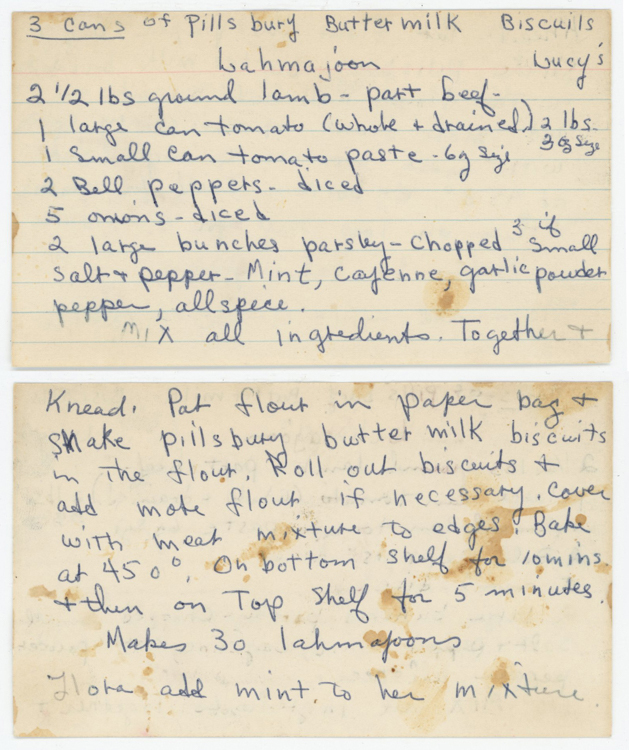 3 cans of Pillsbury Buttermilk Biscuits
Lahmajoon Lucy's
2 1/2 lbs ground lamb - part beef -
1 large can tomato (whole + drained) 2 lbs. 3 oz size
1 small can tomato paste - 6oz size
2 Bell peppers - diced
5 onions - diced
2 large bunches parsley - chopped 3 if small
Salt + pepper - Mint, cayenne, garlic powder
pepper, allspice.
Mix all ingredients. Together +
Knead. Pat flour in paper bag +
shake pillsbury buttermilk biscuits
in the flour. Roll out biscuits +
add more flour if necessary. cover
with meat mixture to edges. Bake
at 450°. On bottom shelf for 10 mins
+ then on Top shelf for 5 minutes.
Makes 30 lahmajoons
Flora add mint to her mixture